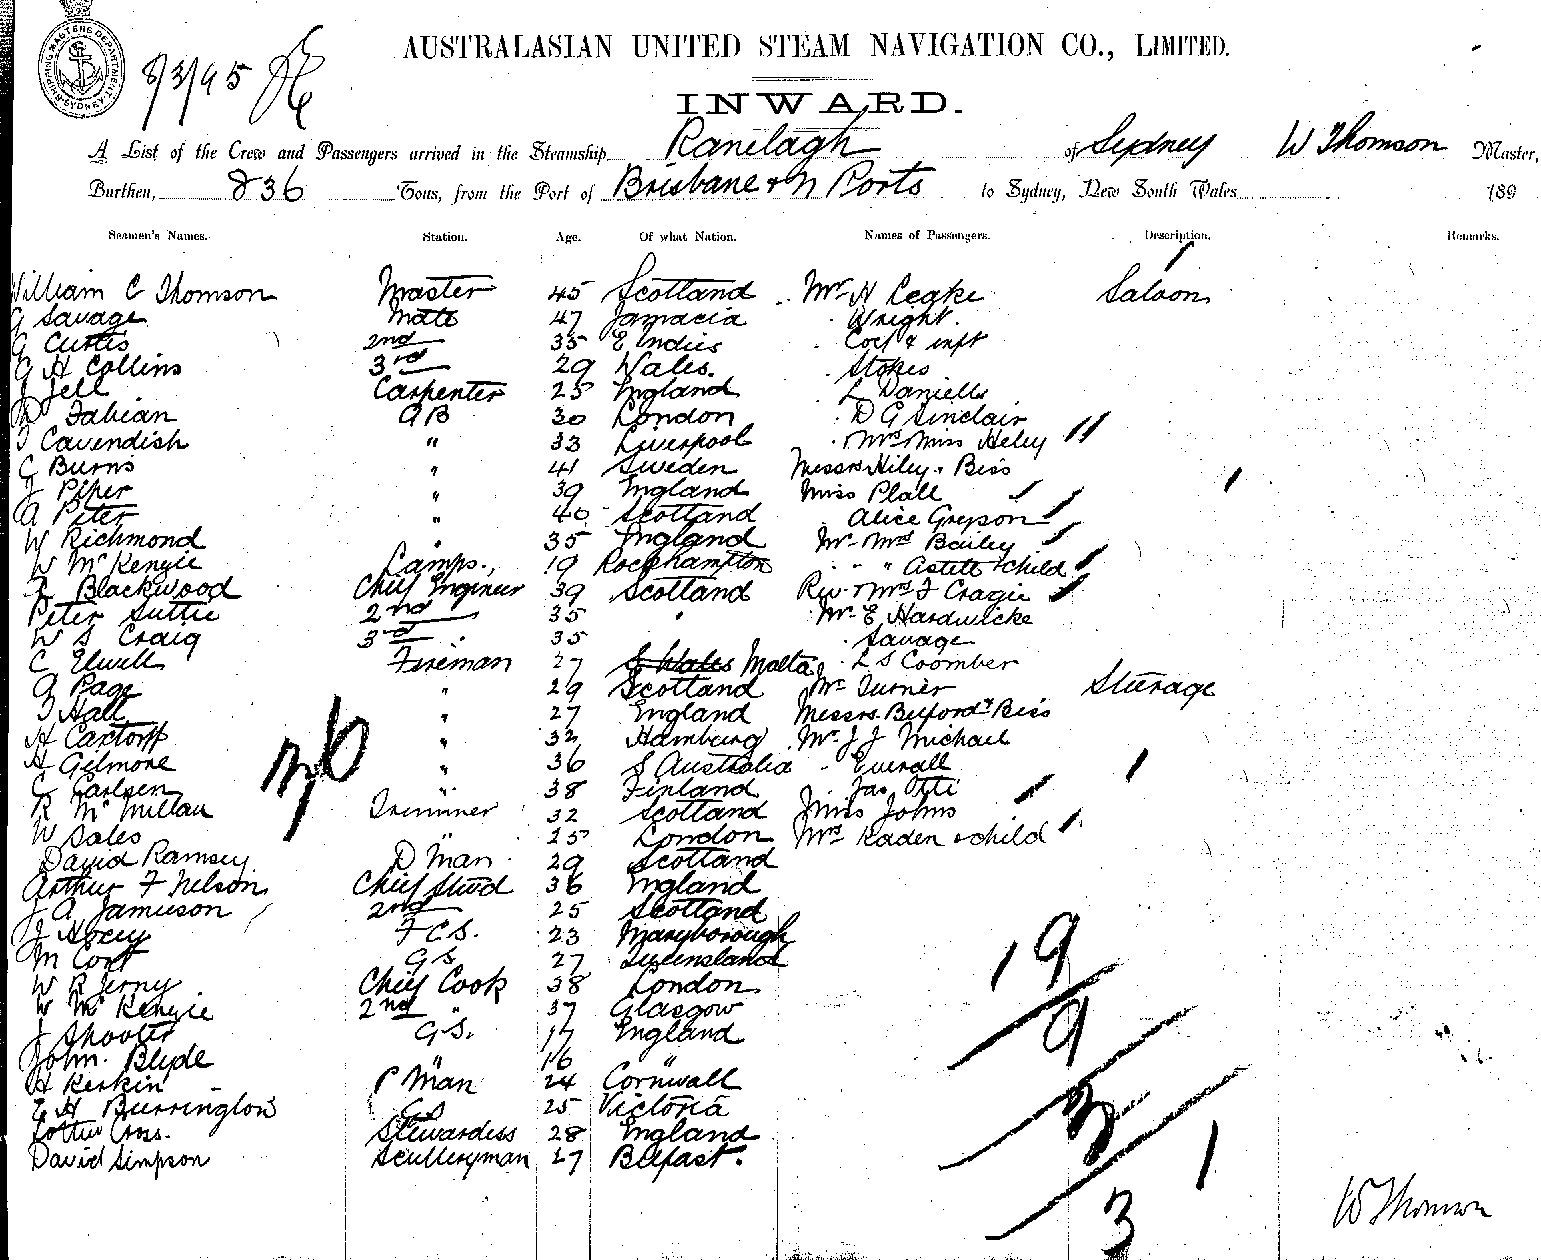 SHIPPING MASTERS DEPARTMENT SYDNEY
8/3/95
AUSTRALASIAN UNITED STEAM NAVIGATION CO., LIMITED.
INWARD.
A List of the Crew and Passengers arrived in the Steamship Ranelagh of Sydney W Thomson Master,
Burthen, 836 Tons, from the Port of Brisbane & N Ports to Sydney, New South Wales 189
Seamen's Names. Station. Age. Of what Nation. Names of Passengers. Description. Remarks.
William C Thomson Master 45 Scotland Mr H Legke Saloon
G Savage Mate 47 Jamacia Wright.
G Curtis 2nd 35 E Indies Coef & inft
G H Collins 3rd 29 Wales. Stokes
J Jell Carpenter 25 England L Daniells
D Fabian AB 30 London D G Sinclair
T Cavendish " 33 Liverpool Mrs Miss Heley
C Burns " 41 Sweden Messrs Hiley & Biss
J Piper " 39 England Miss Plall
A Peter " 40 Scotland Alice Greyson
W Richmond " 35 England Mr Mrs Bailey
W McKenzie Lamps., 19 Rockhampton " " Astell & child
R Blackwood Chief Engineer 39 Scotland Rev & Mrs F Cragie
Peter Suttie 2nd 35 " Mr E Hardwicke
W S Craig 3rd " 35 Savage
C Elwell Fireman 27 S Wales Malta L S Coomber
G Page " 29 Scotland Mr Turner Steerage
T Hall " 27 England Messrs. Belford & Biss
H Cartorff " 32 Hamburg Mr J J Michael
H Gilmore " 36 S Australia Everall
C Carlsen " 38 Finland Jas Otti
R McMillan Trimmer 32 Scotland Miss Johns
W Sales " 25 London Mrs Kaden & child
David Ramsey D Man 29 Scotland
Arthur F Nelson Chief Stwd 36 England
J A Jamieson 2nd 25 Scotland
J Acey F C S. 23 Maryborough
M Cort G S 27 Queensland
W R Jerny Chief Cook 38 London
W McKenzie 2nd " 37 Glasgow
J Shooter G S. 17 England
John Blyde " 16 "
H Kerkin P Man 24 Cornwall
E H Burrington GS 25 Victoria
Lottie Cross. Stewardess 28 England
David Simpson Sculleryman 27 Belfast.
36
19
9
3
1
3
W Thomson